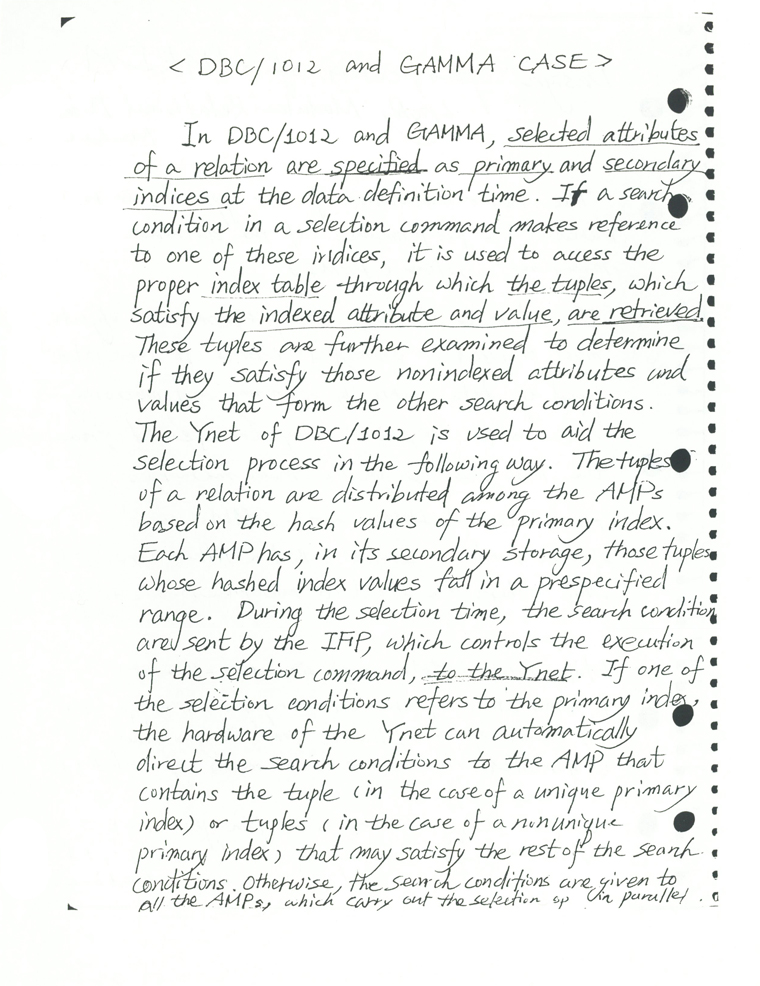 < DBC/1012 and GAMMA CASE >
In DBC/1012 and GAMMA, selected attributes
of a relation are specified as primary and secondary
indices at the data definition time. If a search
condition in a selection command makes reference
to one of these indices, it is used to access the
proper index table through which the tuples, which
satisfy the indexed attribute and value, are retrieved.
These tuples are further examined to determine
if they satisfy those nonindexed attributes and
values that form the other search conditions.
The Ynet of DBC/1012 is used to aid the
selection process in the following way. The tuples
of a relation are distributed among the AMPs
based on the hash values of the primary index.
Each AMP has, in its secondary storage, those tuples
whose hashed index values fall in a prespecified
range. During the selection time, the search condition
are sent by the IFP, which controls the execution
of the selection command, to the Ynet. If one of
the selection conditions refers to the primary index,
the hardware of the Ynet can automatically
direct the search conditions to the AMP that
contains the tuple (in the case of a unique primary
index) or tuples (in the case of a nonunique
primary index) that may satisfy the rest of the search
conditions. Otherwise, the search conditions are given to
all the AMPs, which carry out the selection op in parallel.